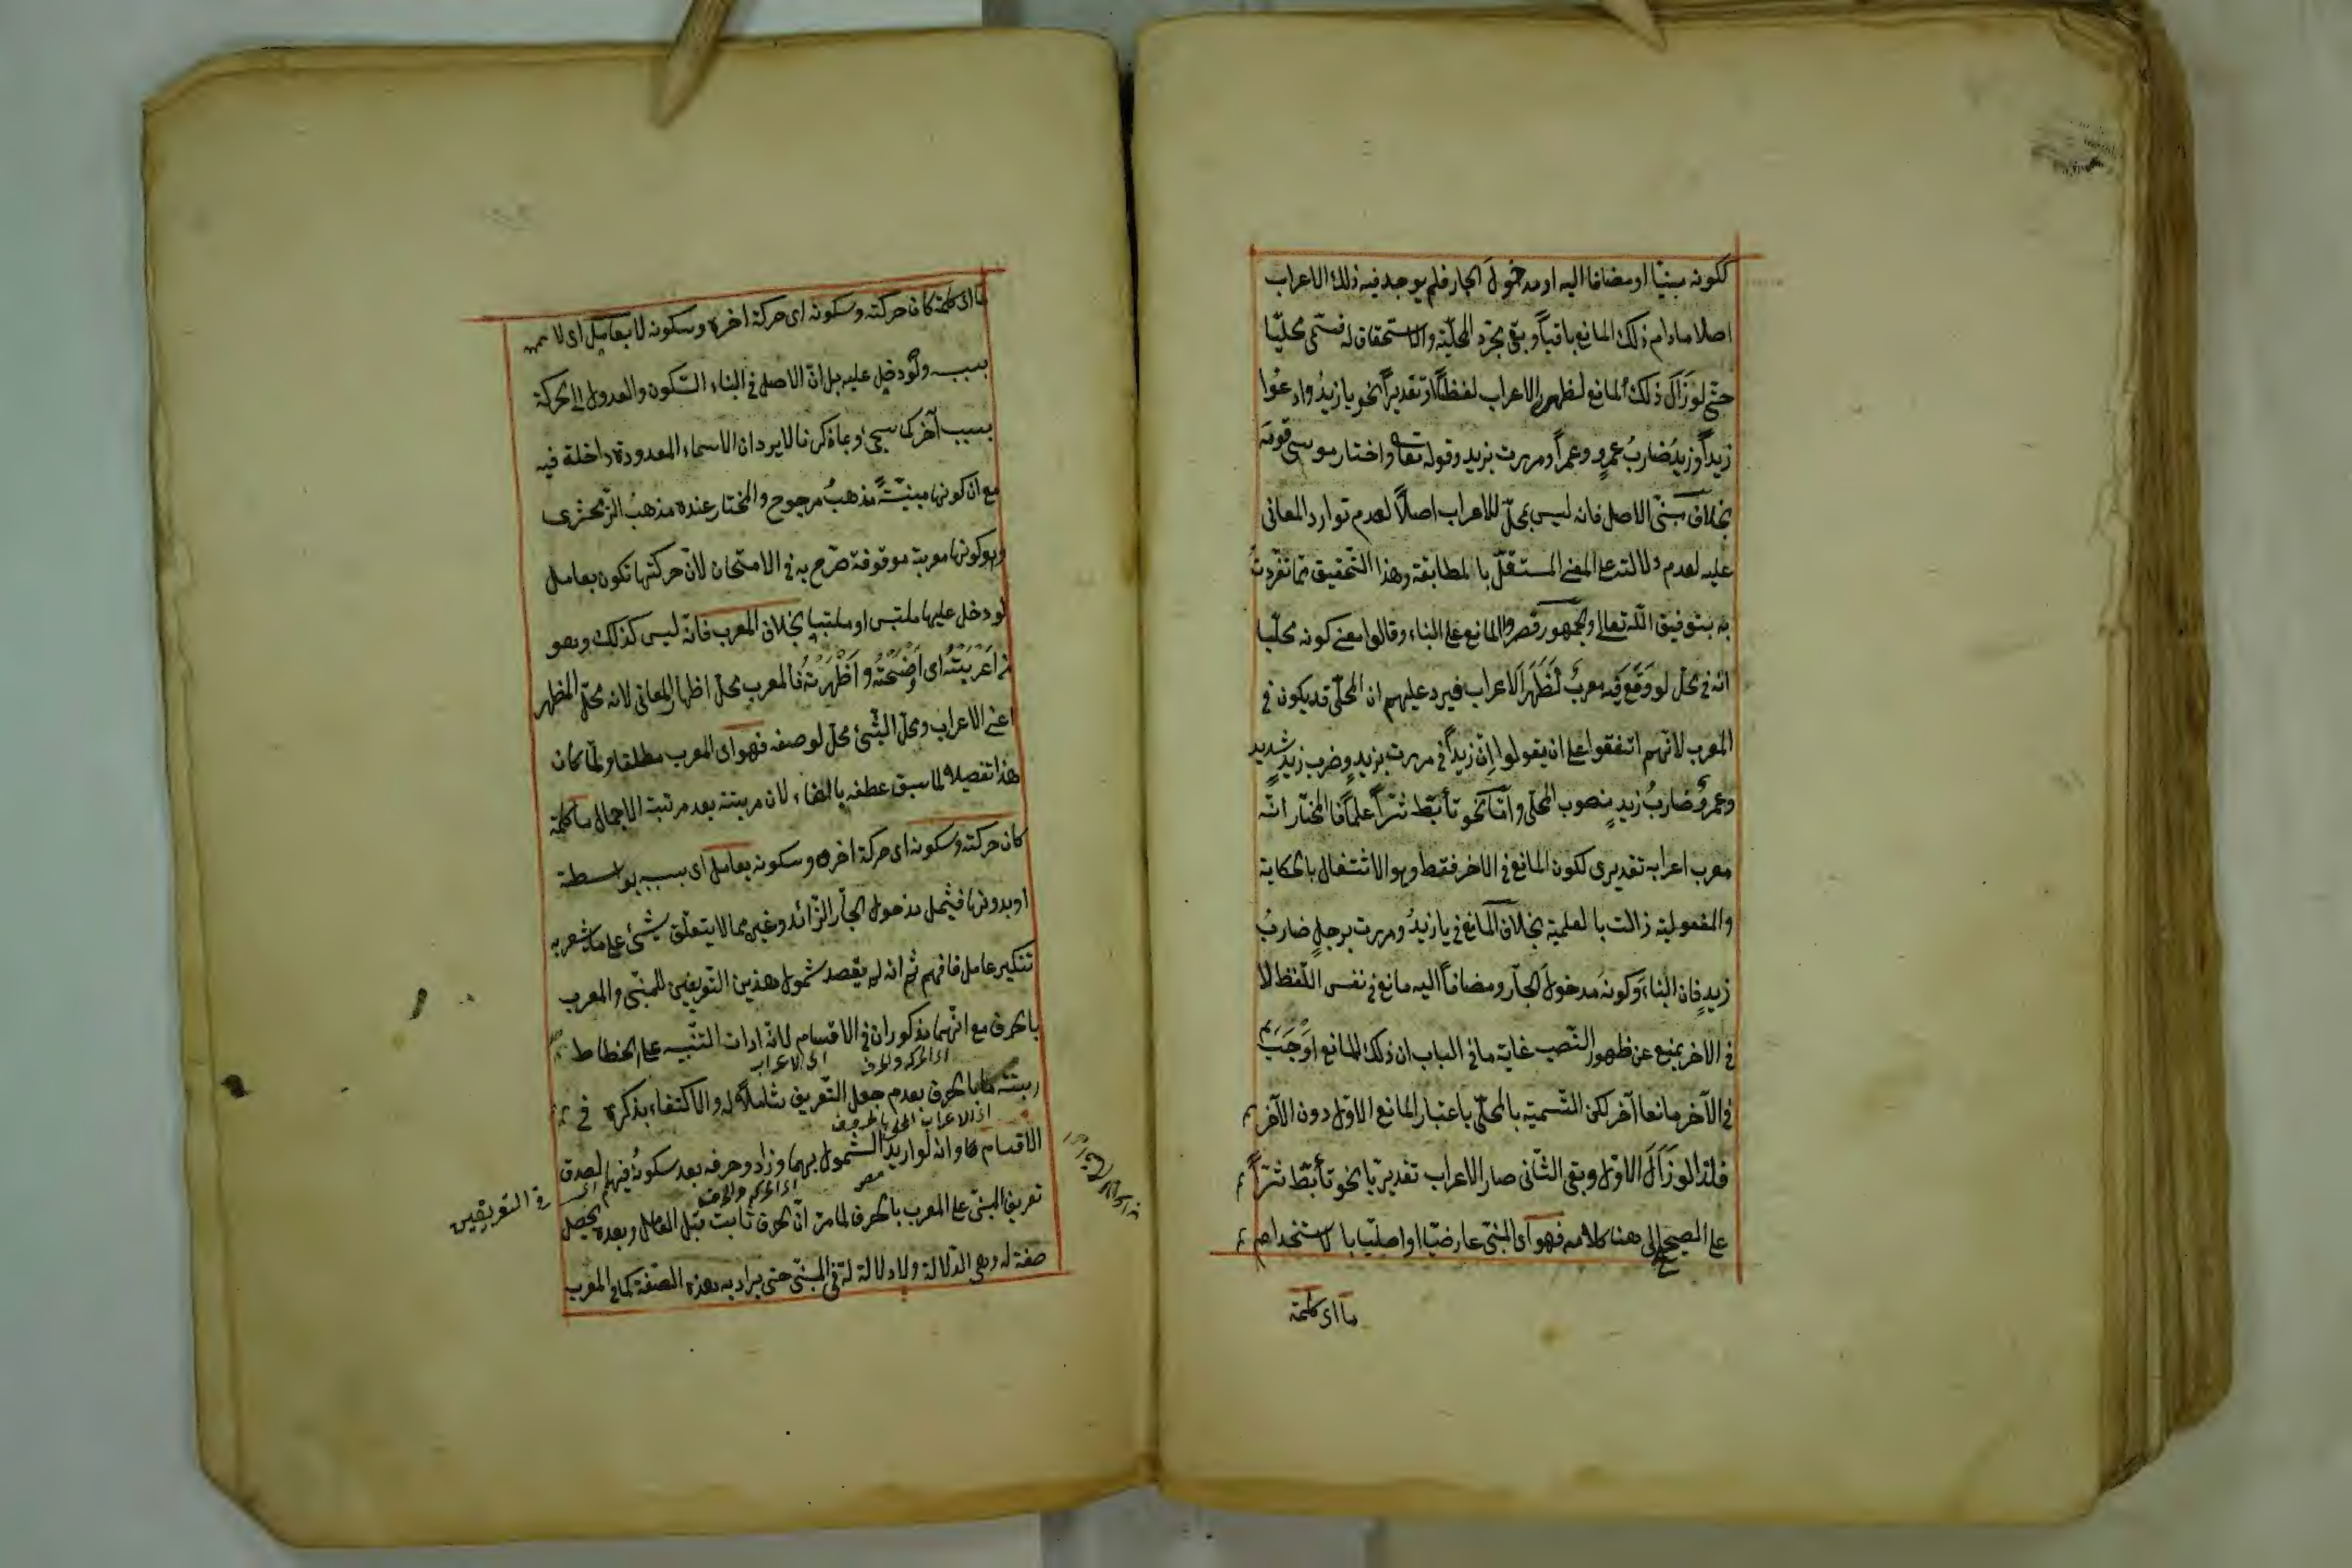 لكونه مبنيا او مضافا اليه او مدخول الجار فلم يوجد فيه ذلك الاعراب
اصلا مادام ذلك المانع باقياً وبقي مجرد المحلية والاستحقاق له فسمّى محليّا
حتى لو زَالَ ذلك المانع لظهر الاعراب لفظاً او تقديراً نحو يا زيدُ وادعُوا
زيداً وزيدٌ ضاربُ عمرٍو وعمراً ومررت بزيد وقوله تعا واختار موسى قومَه
بخلاف مبنىّ الاصل فانه ليس بمحلّ للاعراب اصلاً لعدم توارد المعانى
عليه لعدم دلالته على المعنى المستقلّ بالمطابقة وهذا التحقيق مما تفرّدتُ
به بتوفيق اللّه تعالى والجمهور قصروا المانع على البناء وقالوا معنى كونه محلّيا
انه فى محل لو وَقَع فيه معربٌ لَظَهَرَ الاعراب فيرد عليهم ان المحلّى قد يكون فى
المعرب لانهم اتفقوا على ان يقولوا اِنّ زيداً فى مررت بزيدٍ وضرب زيدٍ شديد
وعمروٌ ضاربُ زيدٍ منصوب المحلّ وامّا نحو تأبّط شرّاً علماً فالمختار انّه
معرب اعرابه تقديرى لكون المانع فى الآخر فقط وهو الاشتغال بالحكاية
والمفعولية زالت بالعلمية بخلاف المانع فى يا زيدُ ومررت برجلٍ ضاربُ
زيدٍ فان البناءَ وكونَه مدخولَ الجار ومضافاً اليه مانع فى نفس اللّفظ لا
فى الآخر يمنع عن ظهور النّصب غاية ما فى الباب ان ذلك المانع اَوْجَبَ
فى الآخر مانعا آخر لكن التّسمية بالمحلّى باعتبار المانع الاوّل دون الآخر
فلذا لو زَالَ الاوّل وبقى الثّانى صار الاعراب تقديريّا نحو تأبّط شرّاً
على الصحيح الى هنا كلامه فهو اى المبنىّ عارضيّا او اصليّا بالاستخدام
ما اى كلمة
ما اى كلمة كان حركته وسكونه اى حركة آخره وسكونه لا بعامل اى لا
بسبب ولو دخل عليه بل انّ الاصل فى البناء السّكون والعدول الى الحركة
بسبب آخر كما سيجئ وبما ذكرنا لا يرد ان الاسماء المعدودة داخلة فيه
مع ان كونها مبنيّةً مذهبٌ مرجوح والمختار عنده مذهبُ الزّمخشرى
وهو كونها معربة موقوفة صرّح به فى الامتحان لانّ حركتها تكون بعامل
لو دخل عليها ملتبس او ملتبسا بخلاف المعرب فانّه ليس كذلك وهو
من اَعْرَبْتُه اى اَوْضَحْتُه واَظْهَرْتُه فالمعرب محلّ اظهار المعانى لانه محلّ المظهر
اعنى الاعراب ومحلّ الشّئ محلّ لوصفه فهو اى المعرب مطلقا ولمّا كان
هذا تفصيلا لما سبق عطفه بالفاء لان مرتبته بعد مرتبة الاجمال ما كلمة
كان حركته وسكونه اى حركة آخره وسكونه بعامل اى بسببه بواسطة
او بدونها فيشمل مدخول الجار الزّائد وغيره مما لا يتعلّق بشئ على ما يشعر به
تنكير عامل فافهم ثم انه لم يقصد شمول هذين التّعريفين للمبنى والمعرب
بالحرف مع انّهما مذكوران فى الاقسام لانّه اراد التنبيه على انحطاط
اى الحركة والحرف اى الاعراب
رتبة ما بالحرف بعدم جعل التّعريف شاملا له والاكتفاء بذكره فى
اى الاعراب المحلى بالحروف
الاقسام وانه لو اريد الشّمول بهما وزاد وحرفه بعد سكونُه فيهما لصدق
اى الحركة والحرف
فى التعريفين
تعريف المبنىّ على المعرب بالحرف لما مرّ انّ الحرف ثابت قبل العامل وبعده يحصل
صفة له وهى الدّلالة ولا دلالة له فى المبنىّ حتى يراد به هذه الصّفة كما فى المعرب